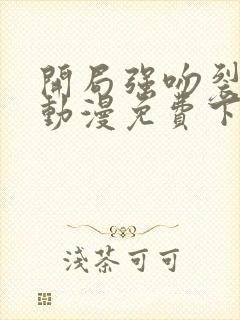 開局強吻裂
動漫免費下
淺茶可可